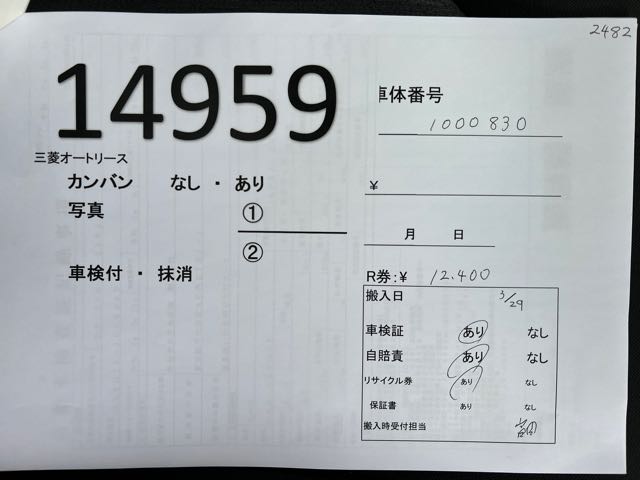 2482
14959
三菱オートリース
カンバン なし ・ あり
写真 ①
②
車検付 ・ 抹消
車体番号
1000830
¥
月 日
R券:¥ 12.400
搬入日 3/29
車検証 あり なし
自賠責 あり なし
リサイクル券 あり なし
保証書 あり なし
搬入時受付担当